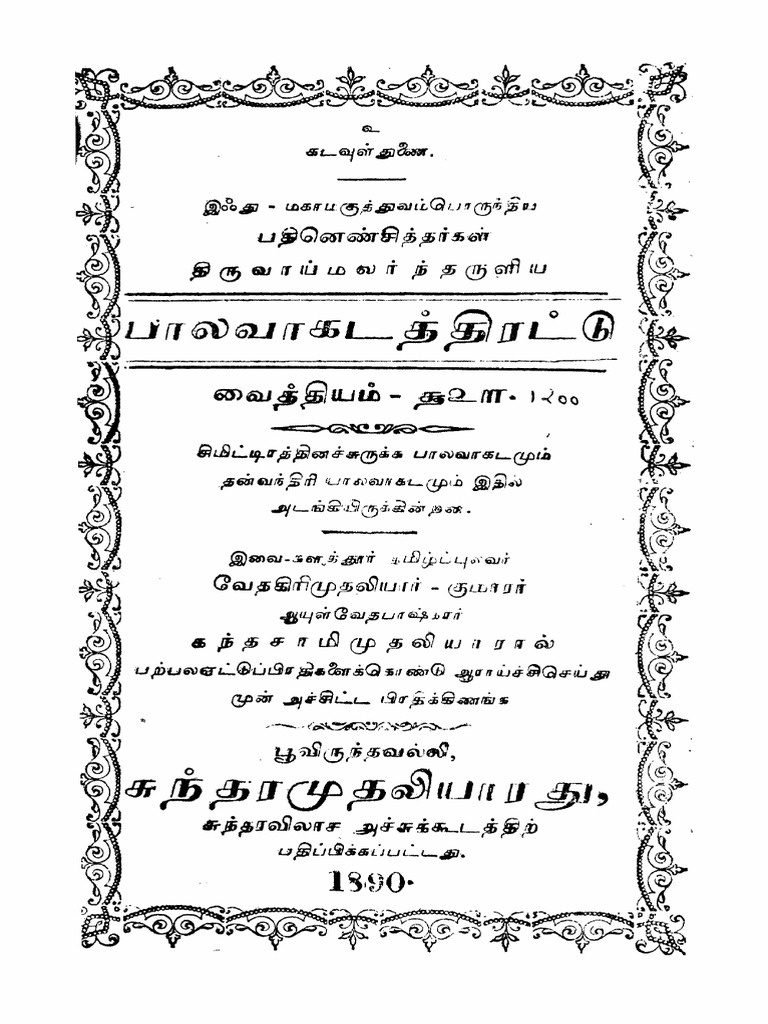 உ
கடவுள்துணை.
இஃது - மகாமகத்துவம்பொருந்திய
பதினெண்சித்தர்கள்
திருவாய்மலர்ந்தருளிய
பாலவாகடத்திரட்டு
வைத்தியம் - ௲௨௱. ௧௨௦௦
சிமிட்டிரத்தினச்சுருக்க பாலவாகடமும்
தன்வந்திரி பாலவாகடமும் இதில்
அடங்கியிருக்கின்றன.
இவை-களத்தூர் தமிழ்ப்புலவர்
வேதகிரிமுதலியார் - குமாரர்
ஆயுள்வேதபாஷ்கரர்
கந்தசாமிமுதலியாரால்
பற்பலஏட்டுப்பிரதிகளைக்கொண்டு ஆராய்ச்சிசெய்து
முன் அச்சிட்ட பிரதிக்கிணங்க
பூவிருந்தவல்லி,
சுந்தரமுதலியாரது,
சுந்தரவிலாச அச்சுக்கூடத்திற்
பதிப்பிக்கப்பட்டது.
1890.